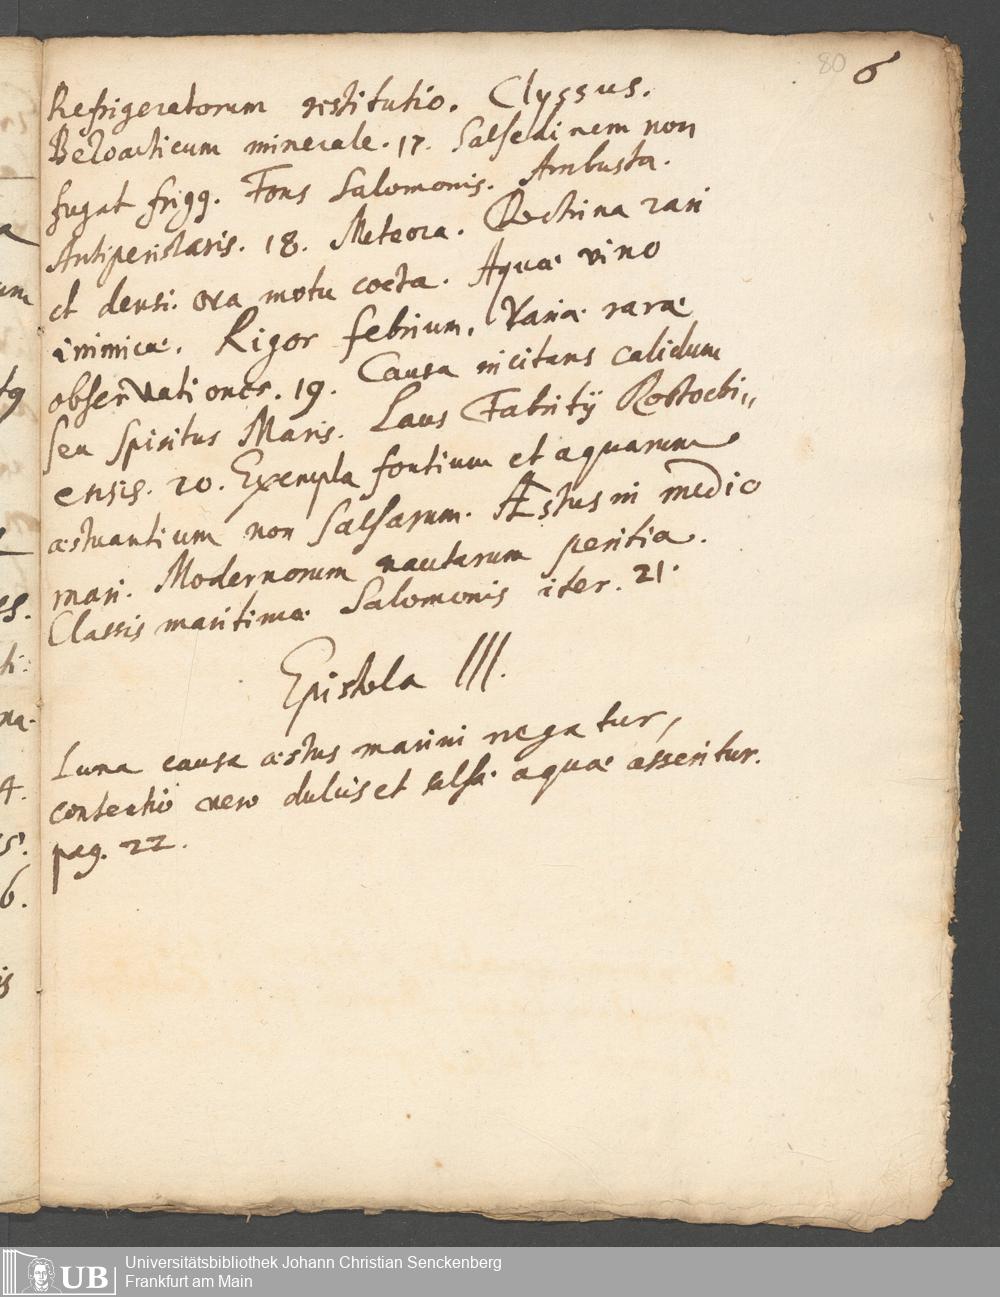 80 6
Refrigeratorum restitutio. Clyssus.
Bezoarticum minerale. 17. Salsedinem non
fugat frigg. Fons Salomonis. Ambusta.
Antiperistasis. 18. Meteora. Doctrina rari
et densi. ova motu cocta. Aquæ vino
inimicæ. Rigor febrium. Variæ raræ
observationes. 19. Causa incitans calidum
seu spiritus Maris. Laus Fabritij Rostochi„
ensis. 20. Exempla fontium et aquarum
æstuantium non salsarum. Æstus in medio
mari. Modernorum nautarum peritia.
Classis maritimæ Salomonis iter. 21.
Epistola III.
Luna causa æstus marini negatur,
contentio vero dulcis et salsæ aquæ asseritur.
pag. 22.
UB
Universitätsbibliothek Johann Christian Senckenberg
Frankfurt am Main